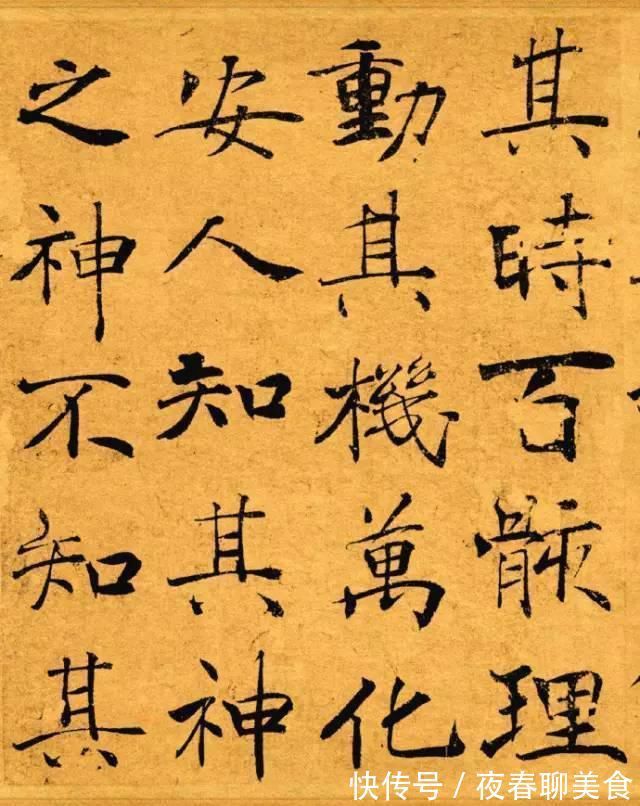 其時百骸理
動其機萬化
安人知其神
之神不知其
快传号 / 夜春聊美食